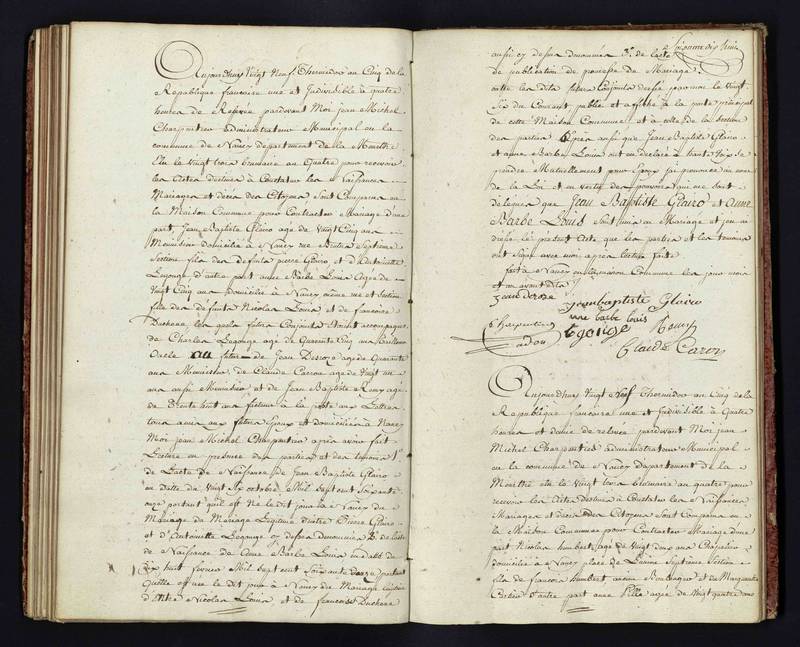 Aujourdhuy Vingt Neuf Thermidor au Cinq de la
République francoise une et Indivisible à quatre
heures de Relevée pardevant Moi jean Michel
Charpentier administrateur Municipal en la
commune de Nancy département de la Meurthe
Elu le vingt trois brumaire an Quatre pour recevoir
les actes destinés à Constater les Naissances
Mariages et décès des Citoyens Sont Comparus en
la Maison Commune pour Contracter Mariage d'une
part, Jean Baptiste Glairo agé de Vingt Cinq ans
Menuisier domicilié à Nancy rue Septieme
Section fils des défunts pierre Glairo et d'Antoinette
Legonge, d'autre part anne Barbe Louis Agée de
Vingt Cinq ans domiciliée à Nancy même rue et Section
fille des défunts Nicolas Louis et de francoise
Duchene, les quels futurs Conjoints Etoient accompagnés
de Charles Legonge agé de Quarante Cinq ans
Oncle au futur de Jean agé de Quarante
ans Menuisier de Claude agé de Vingt un
ans aussi Menuisier et de Jean Baptiste Remy agé
de Trente huit ans facteur à la poste aux Lettres
tous amis aux futurs Epoux et domiciliés à Nancy
Moi jean Michel Charpentier après avoir fait
Lecture en présence des parties et des temoins 1°
de Lacte de Naissance de Jean Baptiste Glairo
en datte du vingt Six octobre Mil Sept cent soixante
onze portant qu'il est Né le dit jour à Nancy du
Mariage de Mariage Légitime d'entre Pierre Glairo
et d'Antoinette Legonge cy dessus denommés 2° de lacte
de Naissance de Anne Barbe Louis en datte du
dix huit février Mil Sept cent Soixante portant
Quelle est née le dit jour à Nancy de Mariage légitime
d'entre Nicolas Louis, et de francoise Duchene
aussi cy dessus denommés 3° de lacte
de publication de promesse de Mariage
entre les dits futurs Conjoints dressé par nous le Vingt
Six du Courant publié et affiché à la porte principale
de cette Maison Commune et à celle de la Section
des parties Après aussi que Jean Baptiste Glairo
et anne Barbe Louis ont eu declaré à haute Voix Se
prendre Mutuellement pour Epoux j'ai prononcé au nom
de la Loi et en vertu des pouvoirs qui me sont
délégués que Jean Baptiste Glairo et Anne
Barbe Louis Sont unis en Mariage et j'en ai
rédigé le présent Acte que les parties et les temoins
ont Signé avec moi après lecture faite
fait à Nancy en la maison Commune les jour mois
et an avant dits
jeanbaptiste Glairo
anne barbe louis
Charpentier
Legonge Remy
Claude
Aujourdhuy Vingt Neuf Thermidor an Cinq de la
République francoise une et Indivisible à Quatre
heures et demie de relevée pardevant Moi jean
Michel Charpentier administrateur Municipal
en la commune de Nancy département de la
Meurthe élu le Vingt trois brumaire an quatre pour
recevoir les Actes destinés à Constater les Naissances
Mariages et décès des Citoyens Sont Comparus en
la Maison Commune pour Contracter Mariage d'une
part Nicolas humbert agé de Vingt deux ans Chapelier
domicilié à Nancy place de Septieme Section
fils de francois humbert et de Marguerite
d'autre part anne agée de Vingt quatre ans